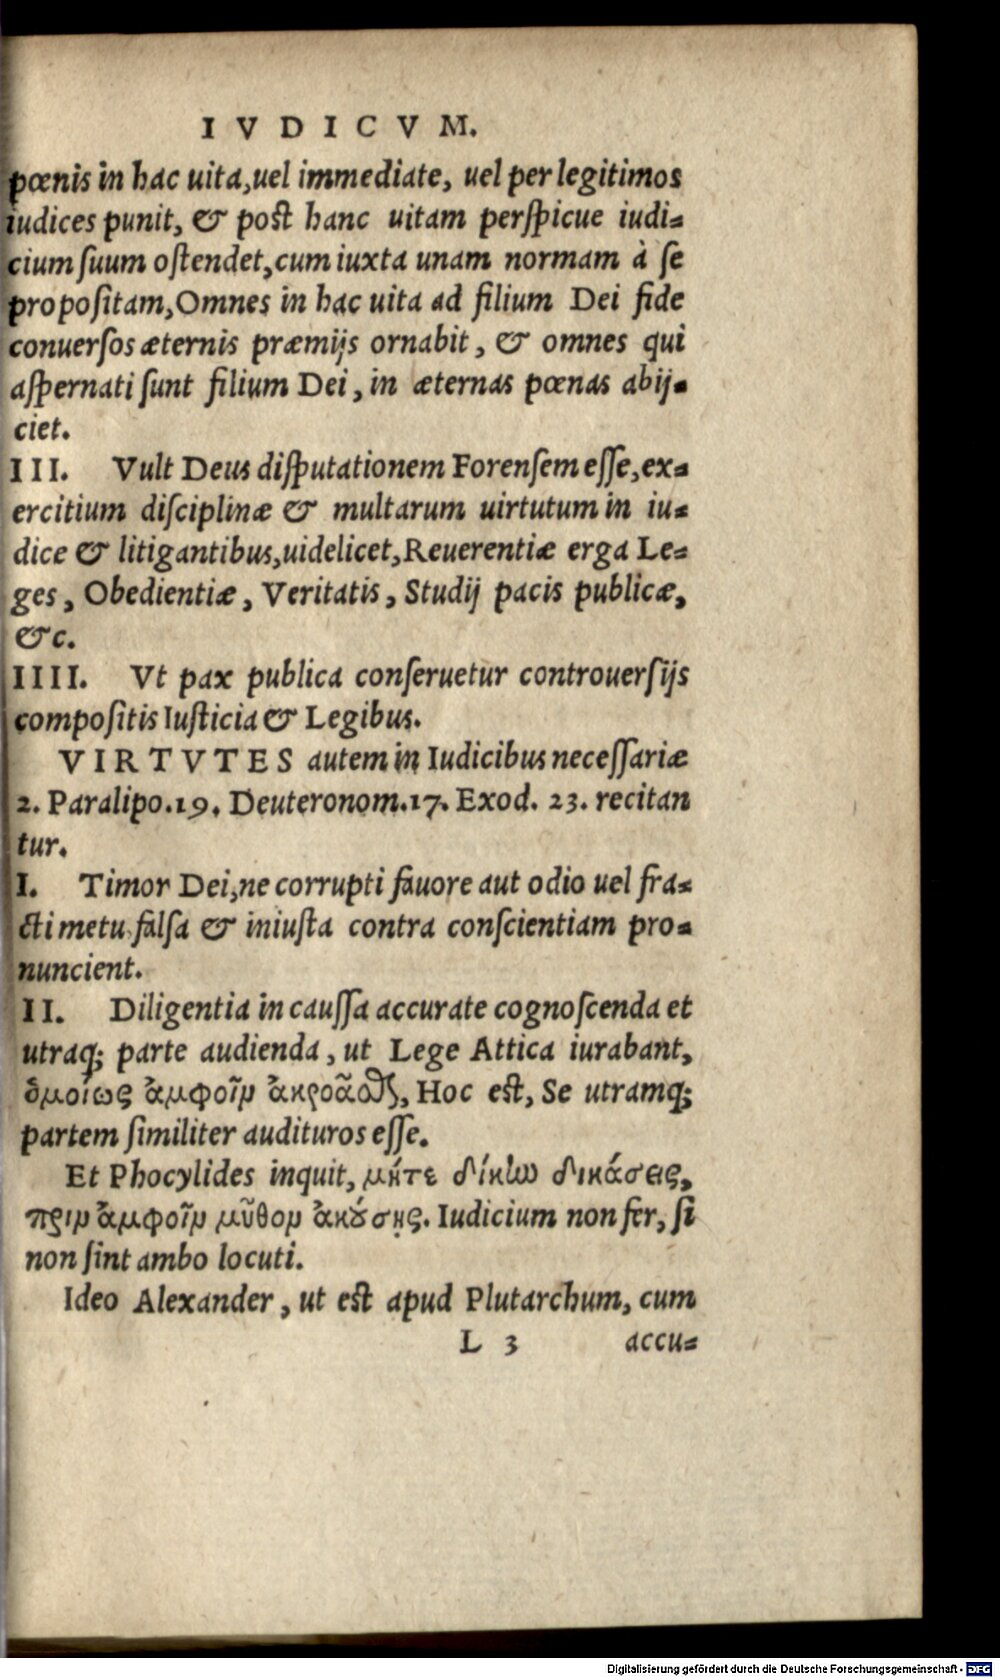 IVDICVM.
pœnis in hac uita, uel immediate, uel per legitimos
iudices punit, & post hanc uitam perspicue iudi=
cium suum ostendet, cum iuxta unam normam à se
propositam, Omnes in hac uita ad filium Dei fide
conuersos æternis præmijs ornabit, & omnes qui
aspernati sunt filium Dei, in æternas pœnas abij=
ciet.
III. Vult Deus disputationem Forensem esse, ex=
ercitium disciplinæ & multarum uirtutum in iu=
dice & litigantibus, uidelicet, Reuerentiæ erga Le=
ges, Obedientiæ, Veritatis, Studij pacis publicæ,
&c.
IIII. Vt pax publica conseruetur controuersijs
compositis Iusticia & Legibus.
VIRTVTES autem in Iudicibus necessariæ
2. Paralipo.19. Deuteronom.17. Exod. 23. recitan
tur.
I. Timor Dei, ne corrupti fauore aut odio uel fra=
cti metu falsa & iniusta contra conscientiam pro=
nuncient.
II. Diligentia in caussa accurate cognoscenda et
utraq; parte audienda, ut Lege Attica iurabant,
ὁμοίως ἀμφοῖν ἀκροᾶσθαι, Hoc est, Se utramq;
partem similiter audituros esse.
Et Phocylides inquit, μήτε δίκην δικάσεις,
πριν ἀμφοῖν μῦθον ἀκούσῃς. Iudicium non fer, si
non sint ambo locuti.
Ideo Alexander, ut est apud Plutarchum, cum
L 3 accu=
Digitalisierung gefördert durch die Deutsche Forschungsgemeinschaft - DFG